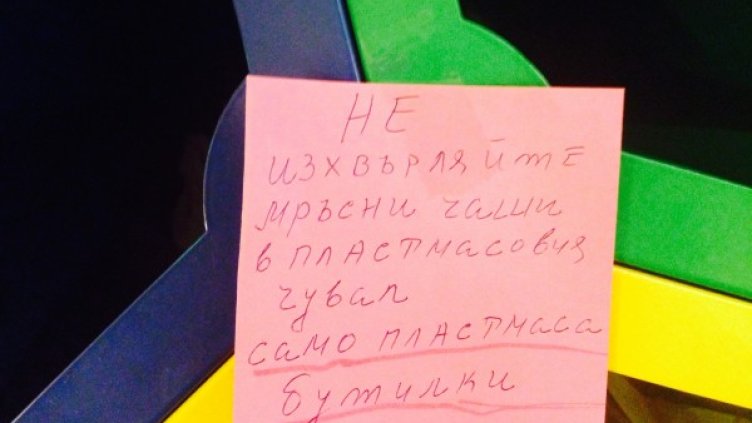 НЕ
ИЗХВЪРЛЯЙТЕ
МРЪСНИ ЧАШИ
В ПЛАСТМАСОВИЯ
ЧУВАЛ
САМО ПЛАСТМАСА
БУТИЛКИ